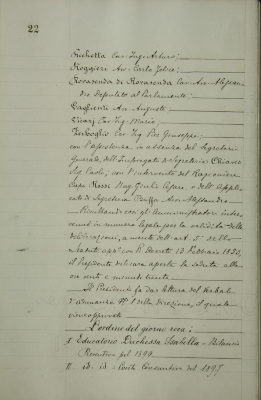 22
Richetta Cav. Ing. Arturo;
Roggieri Avv. Carlo Felice;
Rovasenda di Rovasenda Cav. Avv. Alessan-
dro Deputato al Parlamento;
Avv. Augusto
Vicarj Cav. Ing. Mario;
Cav. Ing. Pio Giuseppe;
con l'assistenza in assenza del Segretario
Generale, dell'Impiegato di Segreteria Chiaves
Sig. Paolo; con l'intervento del Ragioniere
Capo Rossi Rag. Cesare, e dell'Applic-
cato di Segreteria Avv. Alessandro
Risultando così gli Amministratori inter-
venuti in numero legale per la validità delle
deliberazioni, a mente dell'art. 5° dello
Statuto app° con R° Decreto 13 Febbraio 1853,
il Presidente dichiara aperta la seduta alle
ore venti e minuti trenta
Il Presidente fa dar lettura del verbale
d'adunanza della Direzione, il quale
viene approvato
L'ordine del giorno reca:
I Educatorio Duchessa Isabella = Bilancio
Preventivo pel 1896.
II id. id = Conto Consuntivo del 1895